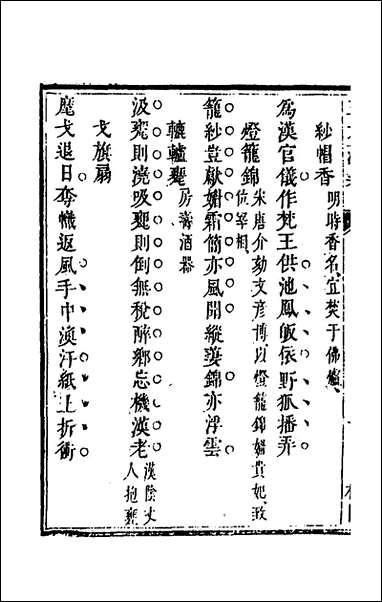 紗帽香明時香名宜焚于佛
為漢官儀作梵王供池鳳皈依野狐播弄
燈籠錦宋唐介劾文彥博以燈籠錦媚貴妃致位宰相
籠紗豈獻媚霜簡亦風聞縱萋錦亦浮雲
轆轤甕房壽酒器
汲甕則澆吸甕則倒無稅醉鄉忘機漢老漢陰丈人抱甕
戈旗扇
麾戈退日奪幟返風手巾渙汗紙上折衝